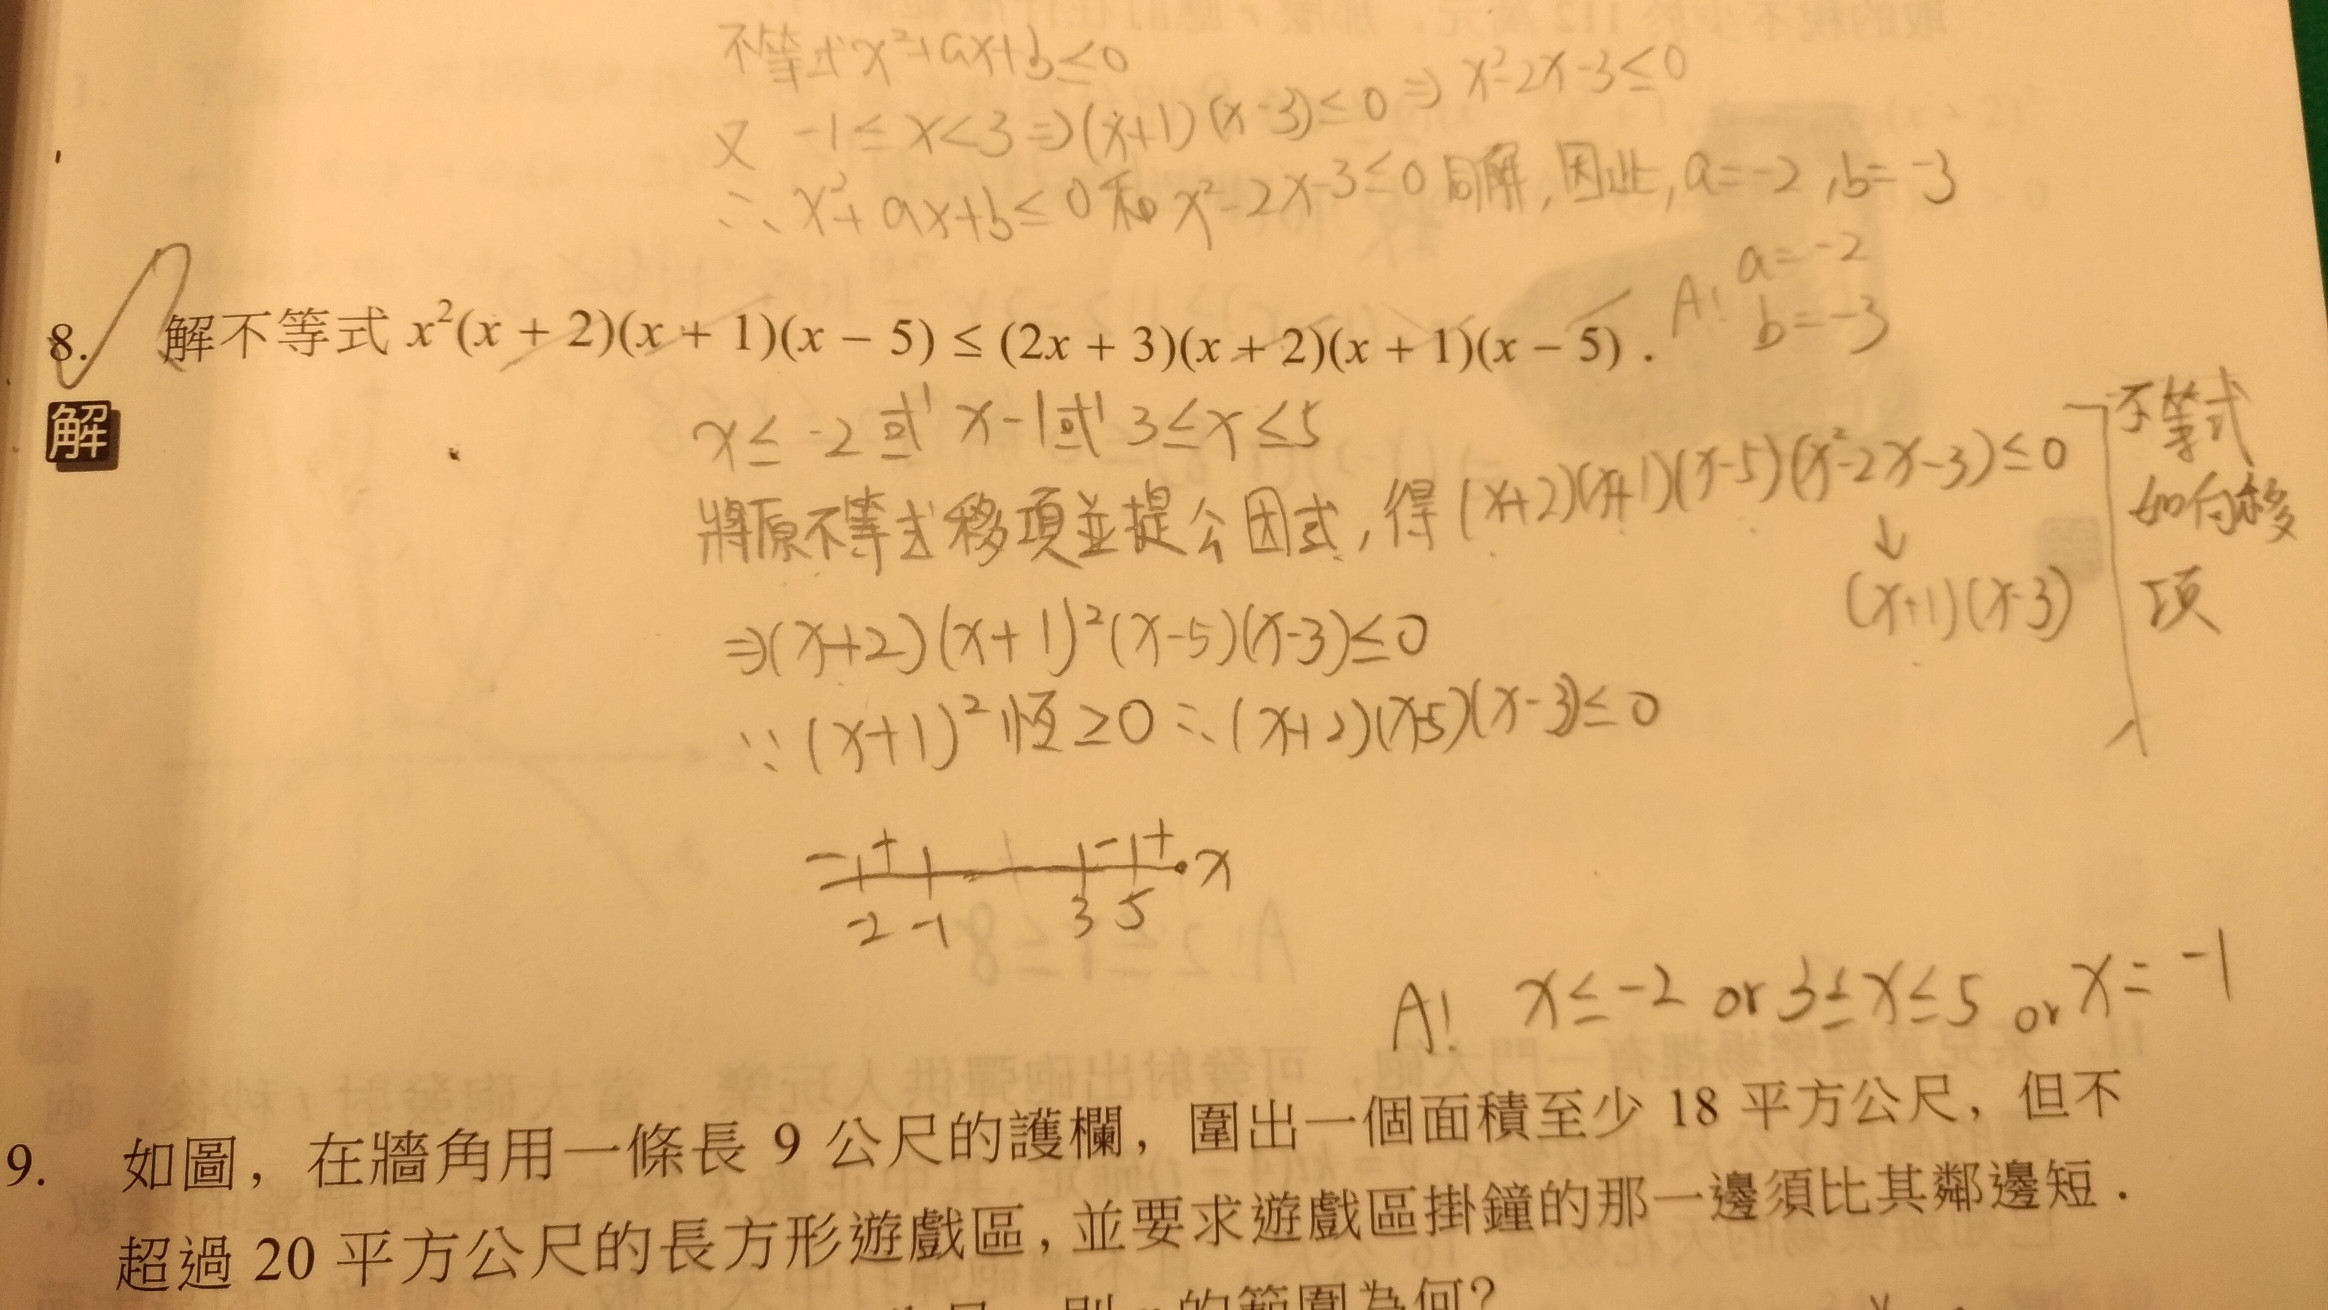 不等式x²+ax+b≤0
又 -1≤x<3⇒(x+1)(x-3)≤0⇒x²-2x-3≤0
∴x²+ax+b≤0和x²-2x-3≤0同解,因此,a=-2,b=-3
A! a=-2
b=-3
8. 解不等式 x²(x + 2)(x + 1)(x − 5) ≤ (2x + 3)(x + 2)(x + 1)(x − 5) .
解
x≤-2或x-1或3≤x≤5
將原不等式移項並提公因式,得(x+2)(x+1)(x-5)(x²-2x-3)≤0
↓
(x+1)(x-3)
不等式
如何移
項
⇒(x+2)(x+1)²(x-5)(x-3)≤0
∵(x+1)²恆≥0∴(x+2)(x-5)(x-3)≤0
- + - + x
-2 -1 3 5
A! x≤-2 or 3≤x≤5 or x=-1
9. 如圖，在牆角用一條長 9 公尺的護欄，圍出一個面積至少 18 平方公尺，但不
超過 20 平方公尺的長方形遊戲區，並要求遊戲區掛鐘的那一邊須比其鄰邊短．
的範圍為何?